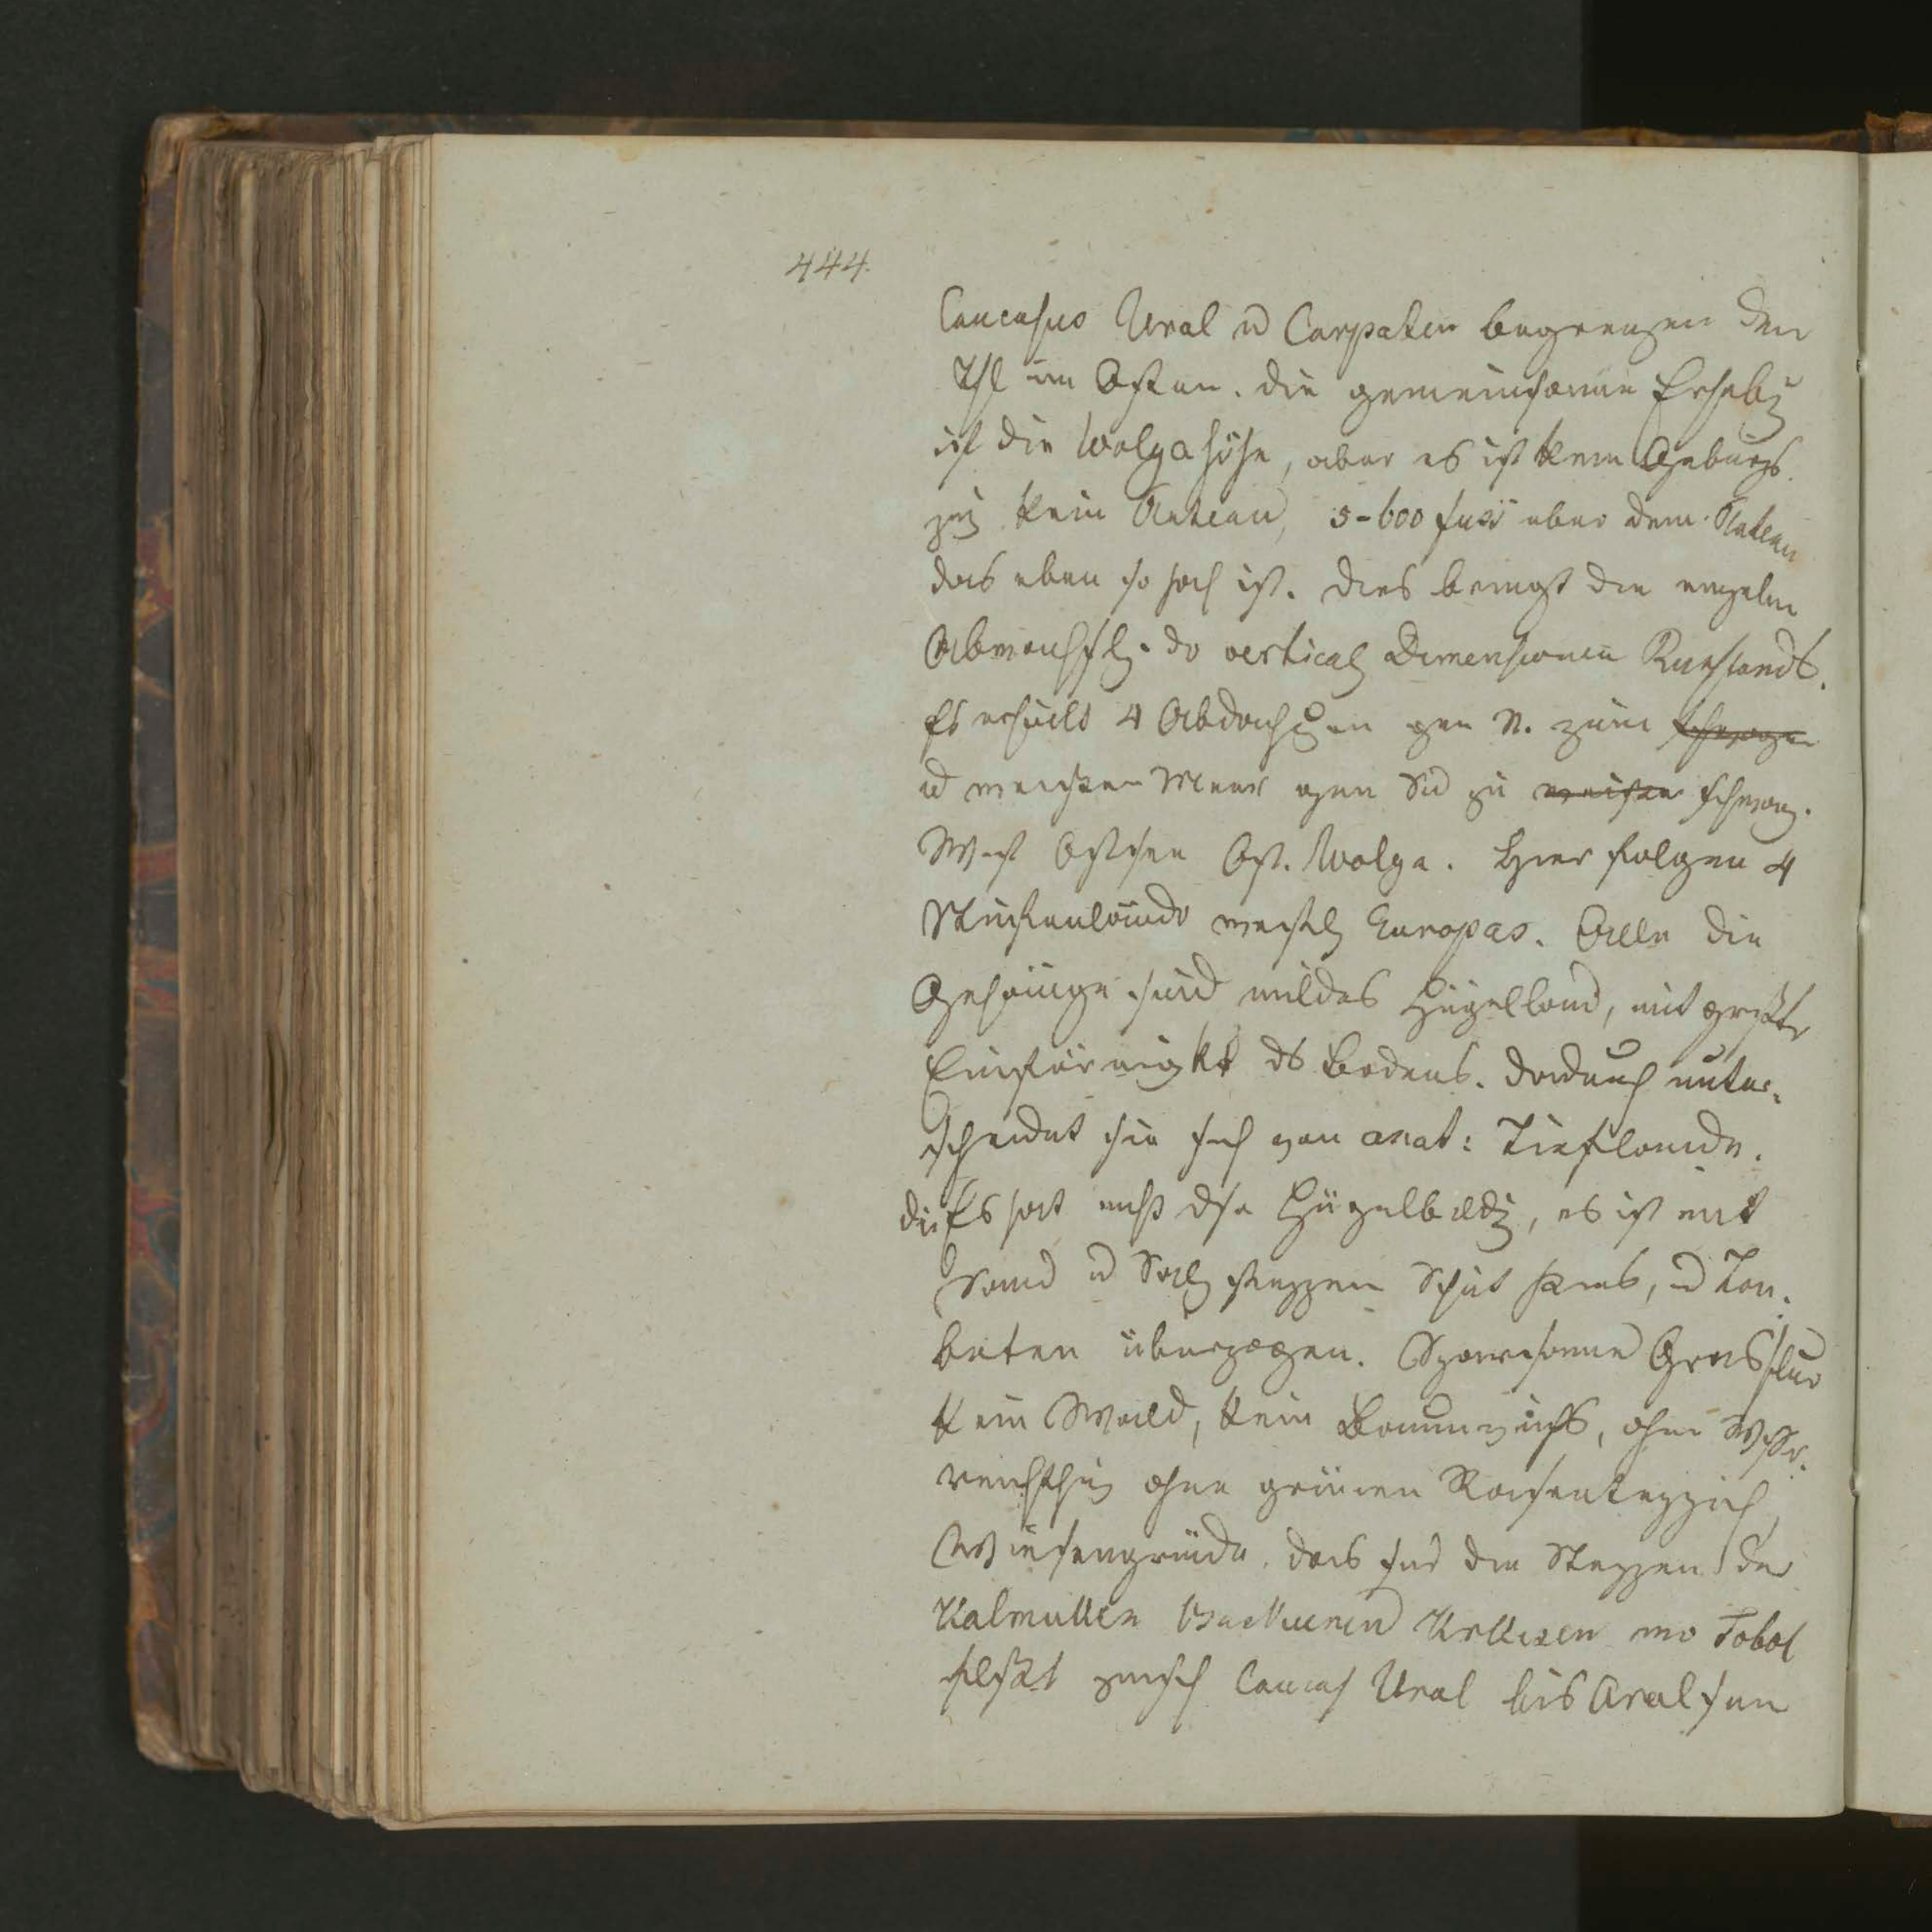 444.
Caucasus Ural u Carpaten begrenzen den
Thl im Osten. die gemeinsame Erhebg
ist die Wolgahöhe, aber es ist kein Gebürgs
zug kein Plateau, 5-600 fuss über dem Plateau
das eben so hoch ist. Dies bringt die einzeln
Abwechslg. dr vertical Dimensionen Russlands.
Es erhielt 4 Abdachungen gen N. zum schwarzen
u weissen Meer gen Süd zu weissen schwarz.
West Ostsee Ost. Wolga. Hier folgen 4
Stufenländr westl Europas. Alle die
Gehänge sind mildes Hügelland, mit grosstr
Einförmigkt ds Bodens. dadurch unter-
scheidet sie sich von asiat: Tieflande.
die Es hat nicht dse Hügelbildg, es ist mit
Sand u Salz steppen Schut Kies, u Ton-
beten überzogen. Sparsame Grasflur
kein Wald, kein Baumwuchs, ohne Wassr-
reichthum ohne grünen Rasenteppich
Wiesengründe. das sind die Steppen der
Kalmukken Kirkisen wo Tobol
fliesst zwisch Caucas Ural bis Aralsee